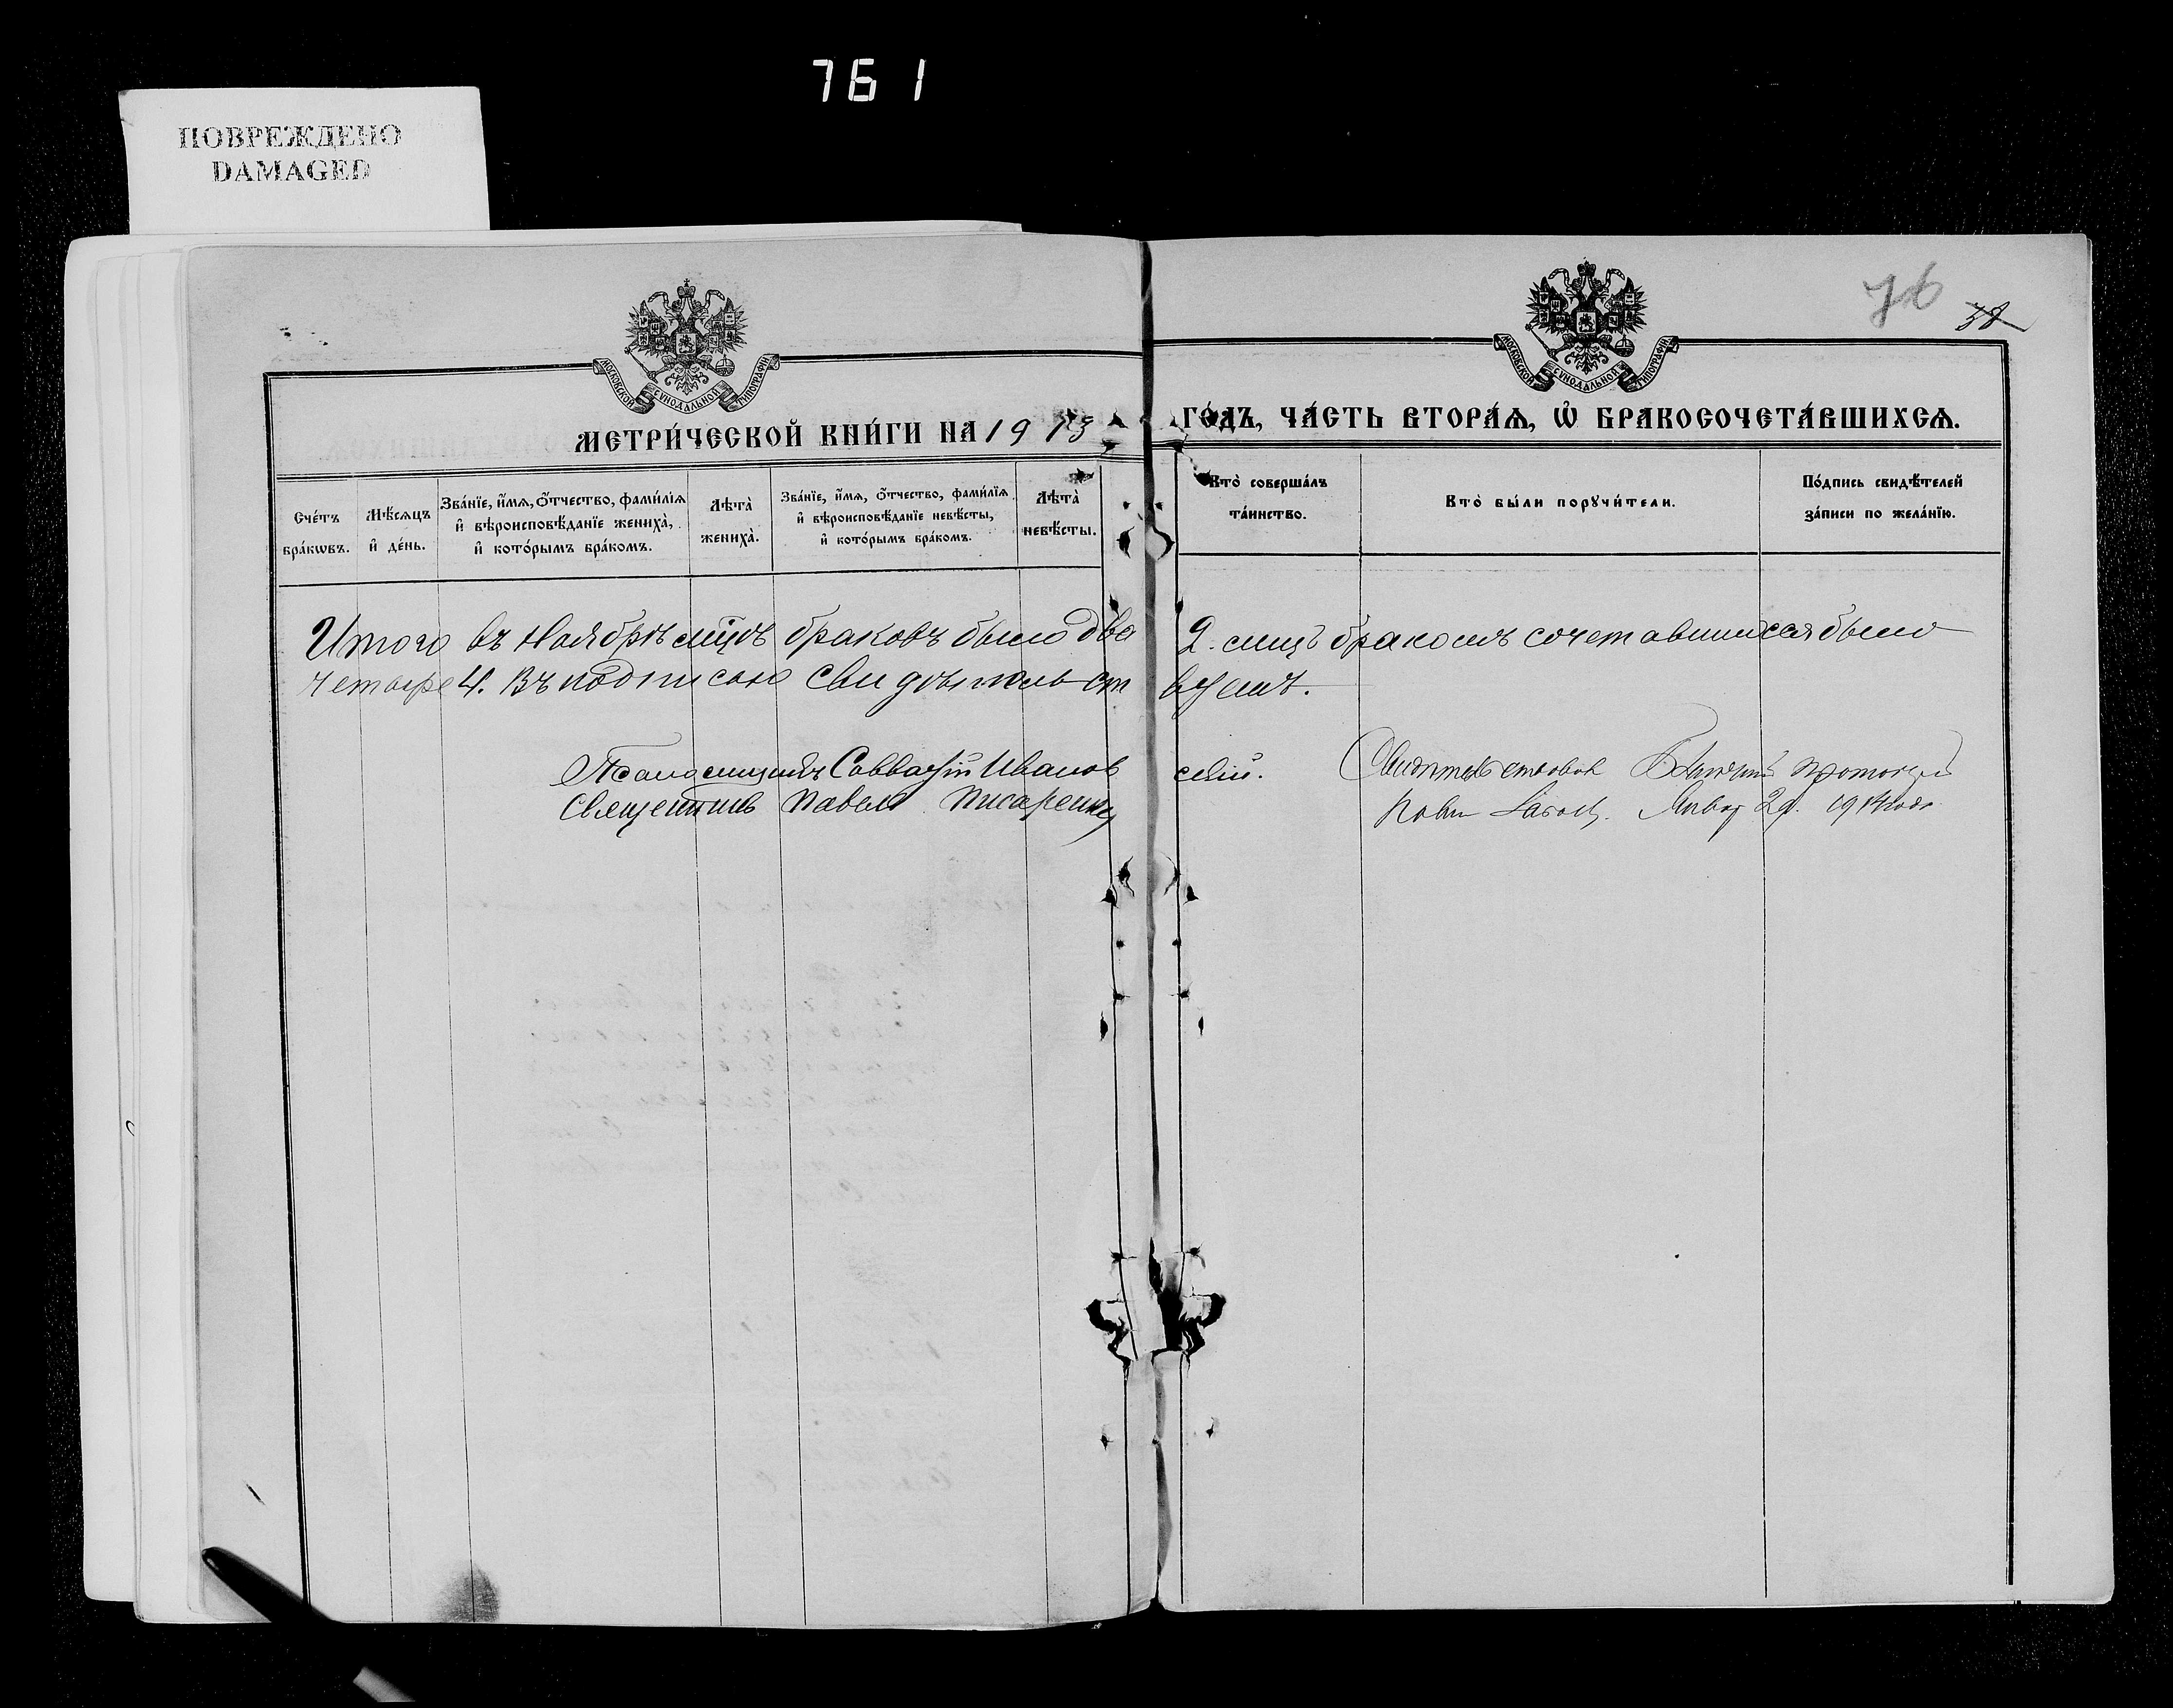 761
ПОВРЕЖДЕНО
DAMAGED
76
38
МОСКОВСКОЙ СѴНОДАЛЬНОЙ ТИПОГРАФІИ
МОСКОВСКОЙ СѴНОДАЛЬНОЙ ТИПОГРАФІИ
МЕТРИ́ЧЕСКОЙ КНИ́ГИ НА 1913 ГО́ДЪ, ЧА́СТЬ ВТОРА́Ѧ, Ѽ БРАКОСОЧЕТА́ВШИХСѦ.
Сче́тъ
бра́кωвъ.
Мѣ́сяцъ
и҆ де́нь.
Зва́нїе, и҆́мѧ, ѻ҆́тчество, фами́лїѧ
и҆ вѣроисповѣ́данїе жениха̀,
и҆ кото́рымъ бра́комъ.
Лѣта̀
жениха̀.
Зва́нїе, и҆́мѧ, ѻ҆́тчество, фами́лїѧ
и҆ вѣроисповѣ́данїе невѣ́сты,
и҆ кото́рымъ бра́комъ.
Лѣта̀
невѣ́сты.
Кто̀ соверша́лъ
та́инство.
Кто̀ бы́ли порꙋчи́тели.
По́дпись свидѣ́телей
за́писи по жела́нїю.
Итого въ Ноябрѣ мѣцѣ браковъ было два 2. лицъ бракомъ сочетавшихся было
четыре 4. Въ подписью свидѣтельствуемъ.
Псаломщикъ Савватій Ивановскій.
Священникъ Павелъ Писаренко
Свидѣтельствовалъ Благочинный Протоіерей
Январ 29. 1914 года